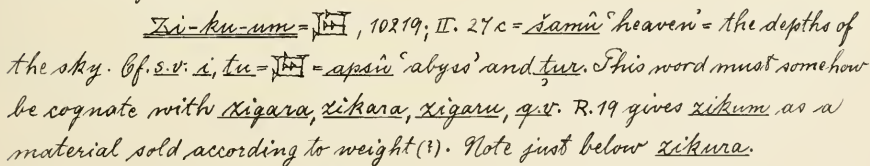 Zi-ku-um = 𒇉, 10219; II. 27c = šamû 'heaven' = the depths of
the sky. Cf. s.v. i, tu = = apsû 'abyss' and tur. This word must somehow
be cognate with zigara, zikara, zigaru, q.v. R. 19 gives zikum as a
material sold according to weight (?). Note just below zikura.